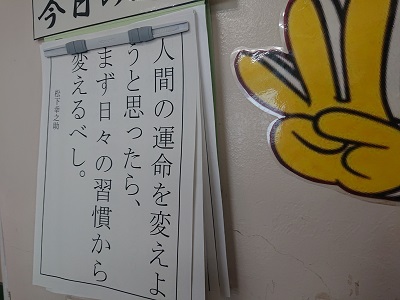 今日の
人間の運命を変えよ
うと思ったら、
まず日々の習慣から
変えるべし。
松下幸之助